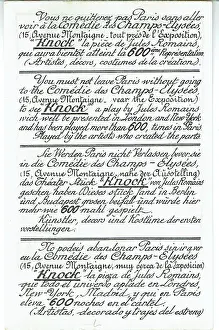 Vous ne quitterez pas Paris sans aller
voir à la Comédie des Champs-Elysées
(15, Avenue Montaigne, tout près de l'Exposition)
"Knock" la pièce de Jules Romains,
qui aura bientôt atteint la 600e Représentation
(Artistes, décors, costumes de la création).
You must not leave Paris without going
to the Comédie des Champs-Elysées,
(15, Avenue Montaigne, near the Exposition)
to see "Knock" a play by Jules Romains
wich will be presented in London and New York
and has been played more than 600 times in Paris
Played by the artists who created the parts.
Sie Werden Paris nicht Verlassen, bevor sie
in die Comédie des Champs-Elysées,
(15, Avenue Montaigne, nahe der Ausstellung)
das Theater Stück "Knock" von Jules Romains
gesehen haben. Dieses Stück fand in Berlin
und Budapest grossen beifall und würde hier
mehr wie 600 mahl gespielt.
Künstler, decors und Kostüme derersten
vorstellungen.
No podeis abandonar Paris sin ir a ver
eu la Comédie des Champs-Elysées
(15, Avenue Montaigne, muy cerca de la Exposicion)
"Knock" la pieza de Jules Romains,
que todo el universo aplaude en Londres,
New York, Madrid, y que en Paris
eleva "600 noches en el cartel"
(Artistas, decorado y trajes del estreno)